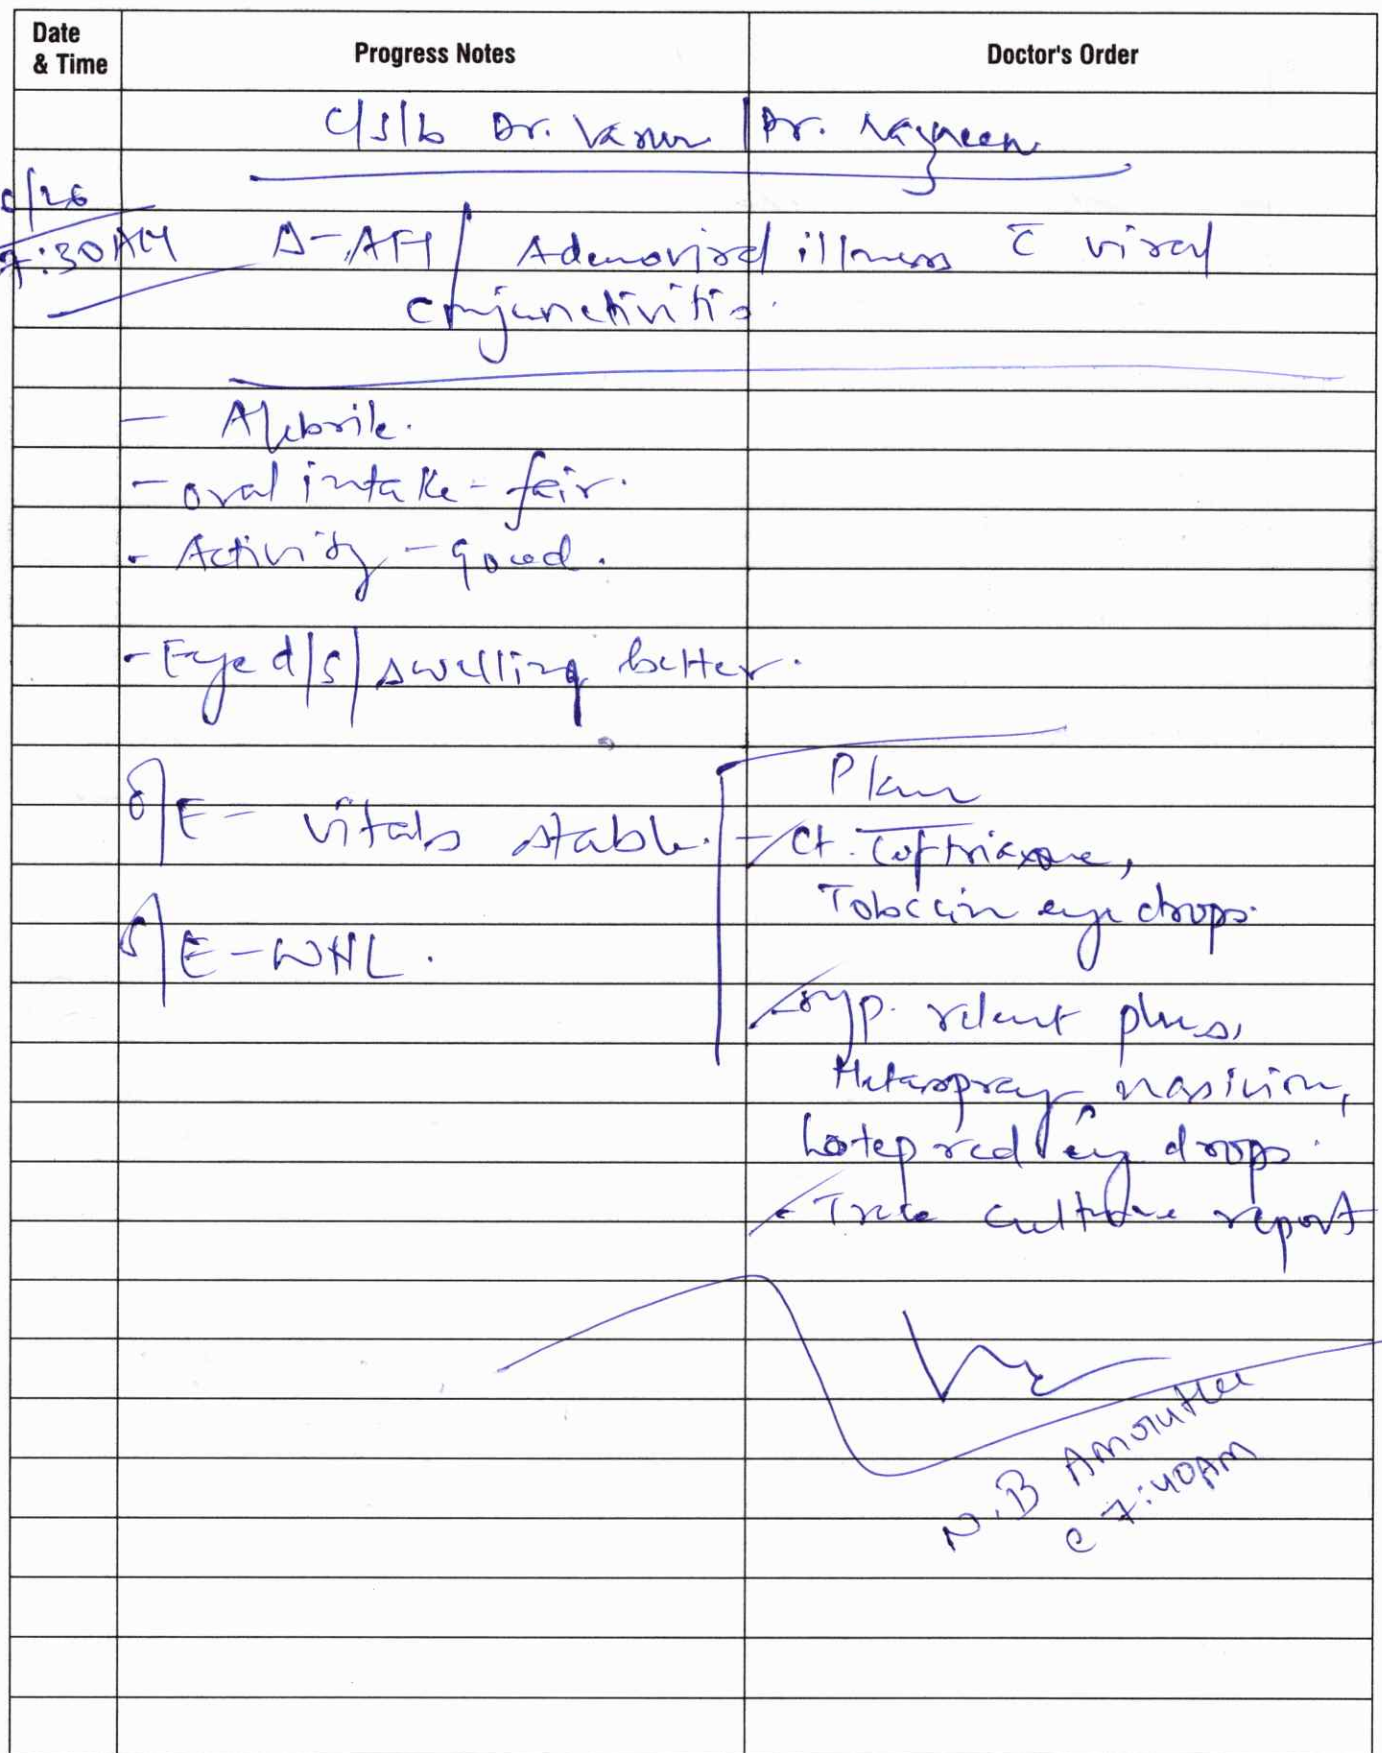 Date & Time
Progress Notes
Doctor's Order
C/S/b Dr. Varun / Dr. Nazneen
/26
7:30AM
Δ-AFI / Adenoviral illness c̄ viral
conjunctivitis.
- Afebrile.
- oral intake - fair.
- Activity - good.
- Eye d/s / swelling better.
O/E - vitals stable.
S/E - WNL.
Plan
- Ct. Ceftriaxone,
Tobacin eye drops.
- Syp. relent plus,
Metaspray, nasivion,
Lotepred eye drops.
- Trace culture report
N.B Amrutha
@ 7:40AM